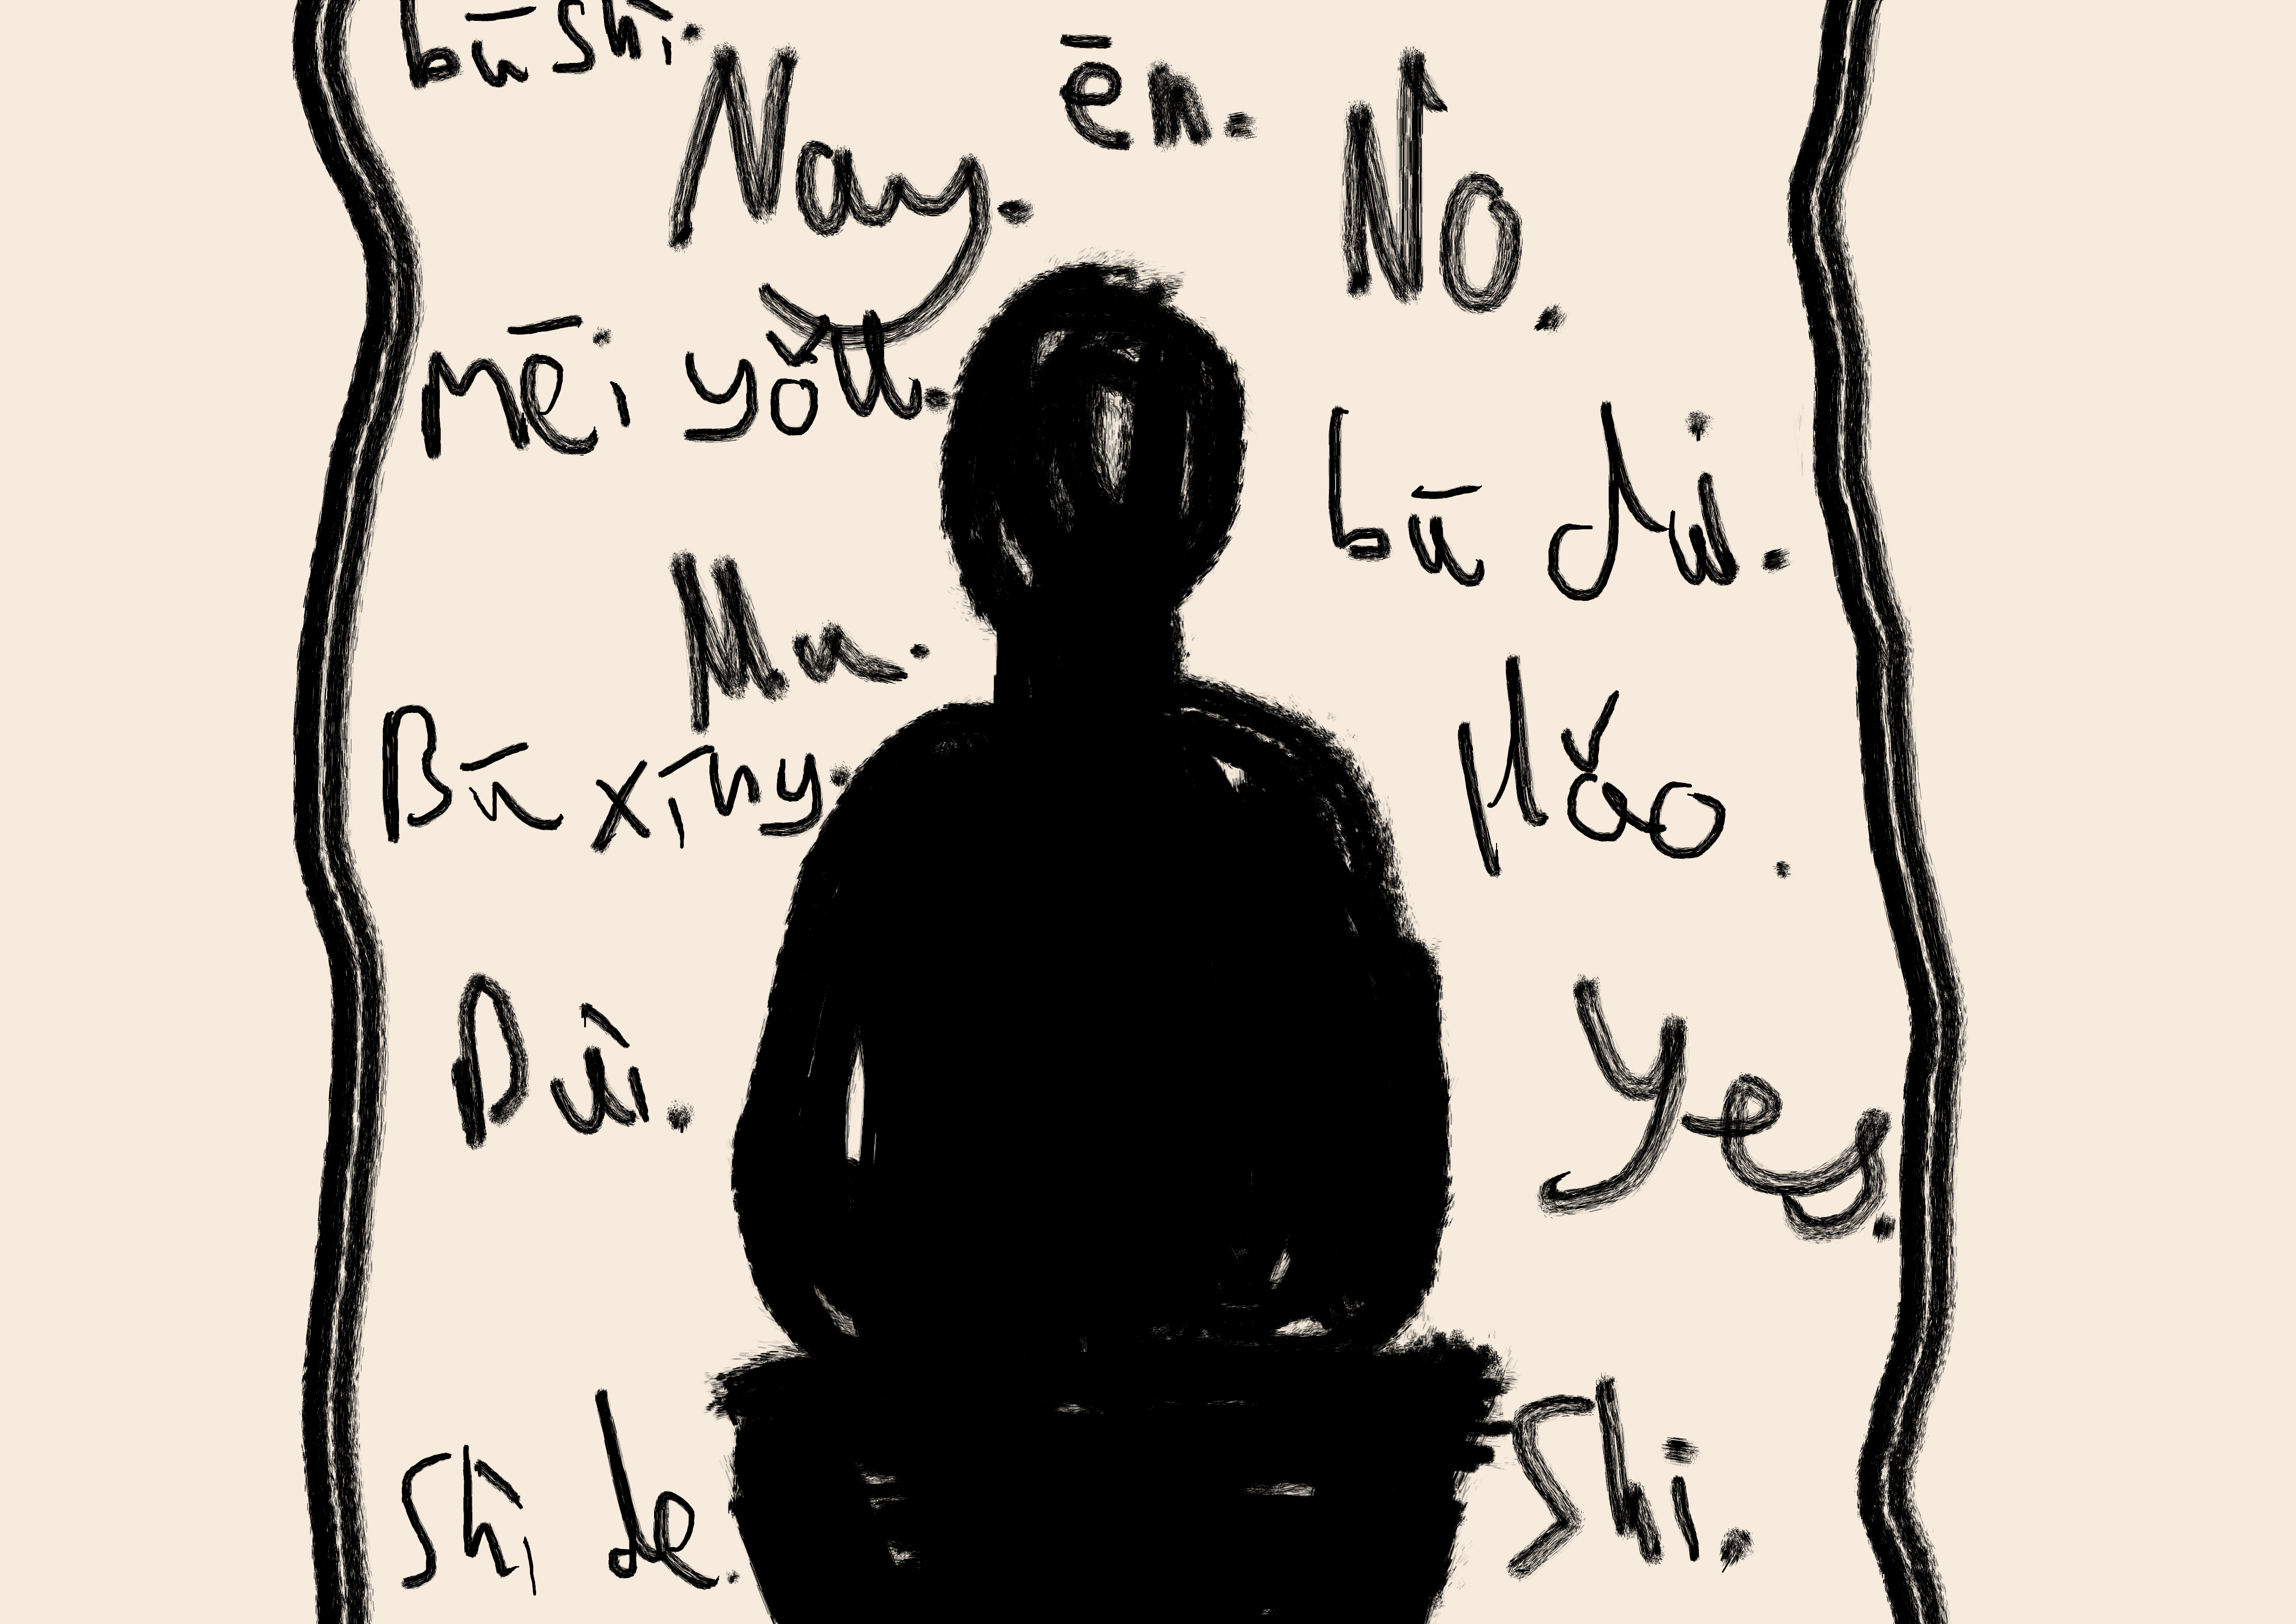 bū shì.
ēn.
Nay.
No.
mēi yǒu.
bū dui.
Mu.
Bū xīng.
Hǎo.
Duì.
Yes.
Shì de.
Shi.